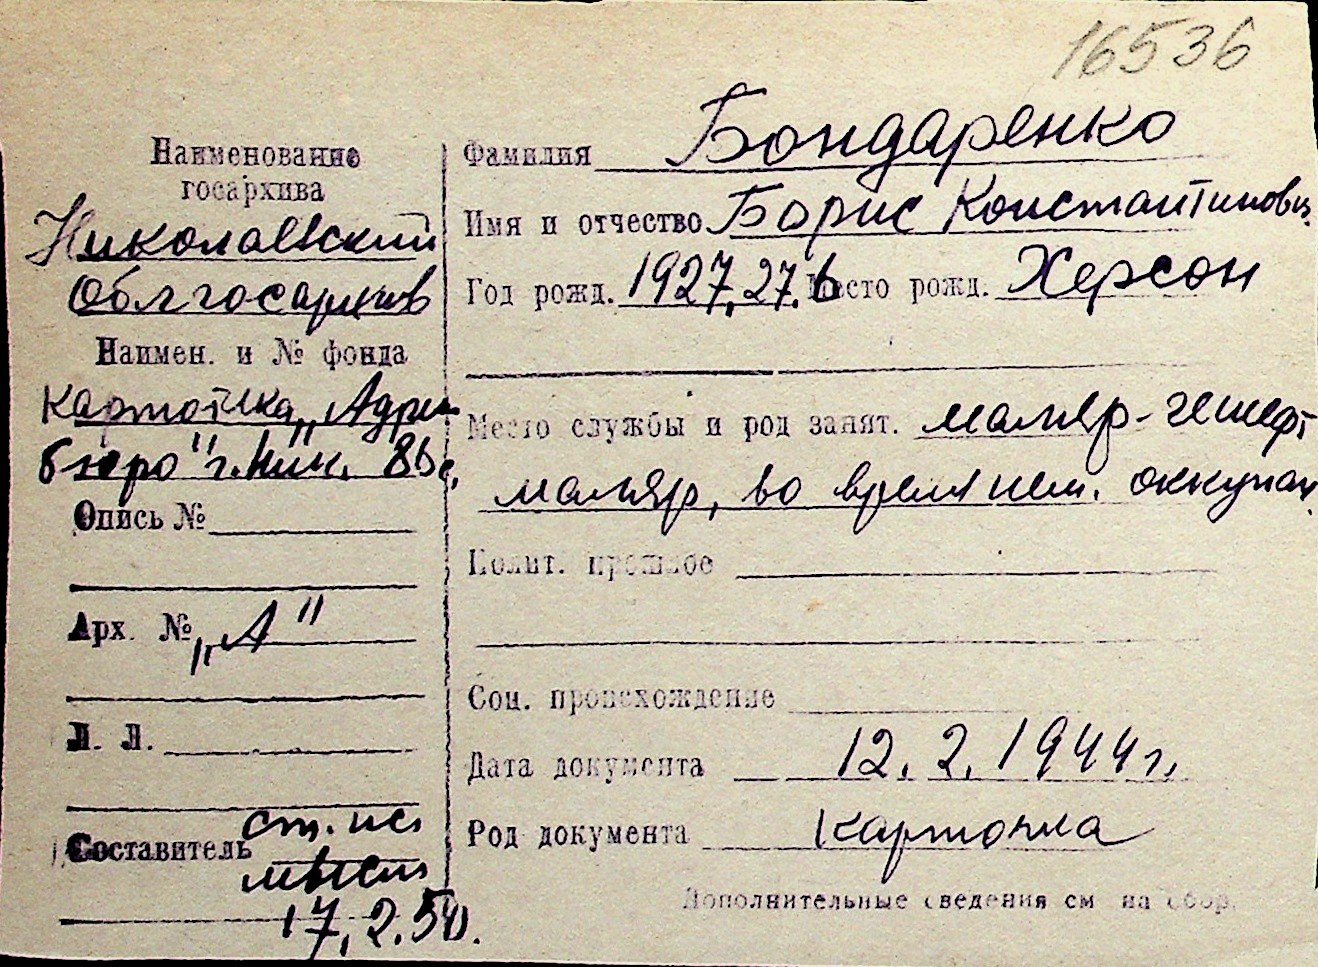 16536
Наименование
госархива
Николаевский
Облгосархив
Наимен. и № фонда
картотека „Адрес
бюро" г. Ник.
Опись №
Арх. № „А"
Л. Л.
Составитель ст. н.с.
17.2.50.
Фамилия Бондаренко
Имя и отчество Борис Константинович
Год рожд. 1927.27.6 Место рожд. Херсон
Место службы и род занят. маляр-гешефт
маляр, во время нем. оккупац.
Полит. прошлое
Соц. происхождение
Дата документа 12.2.1944 г.
Род документа карточка
Дополнительные сведения см на обор.